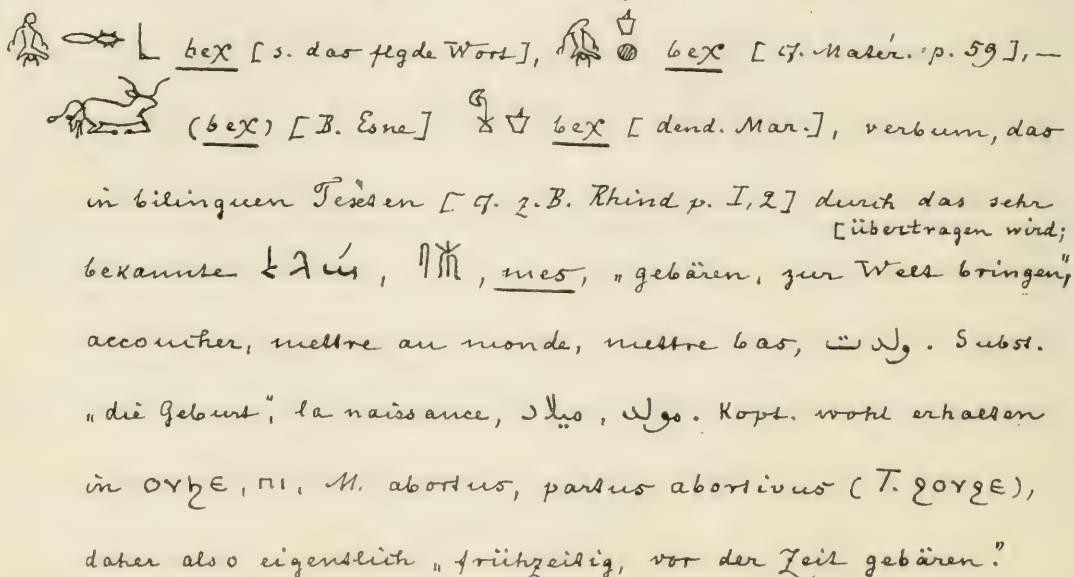 𓁒 𓆡 𓃀 beχ [s. das flgde Wort], 𓁒 𓎼 𓐍 beχ [cf. Matér. p. 59], —
(beχ) [B. Esne] beχ [dend. Mar.], verbum, das
in bilinguen Texten [cf. z.B. Rhind p. I, 2] durch das sehr
[übertragen wird;
bekannte , 𓋴𓄟, mes, „gebären, zur Welt bringen",
accoucher, mettre au monde, mettre bas, ولدت. Subst.
„die Geburt", la naissance, مولد, ميلاد. Kopt. wohl erhalten
in ⲟⲩϧⲉ, ⲡⲓ, M. abortus, partus abortivus (T. ϩⲟⲩϩⲉ),
daher also eigentlich „frühzeitig, vor der Zeit gebären."